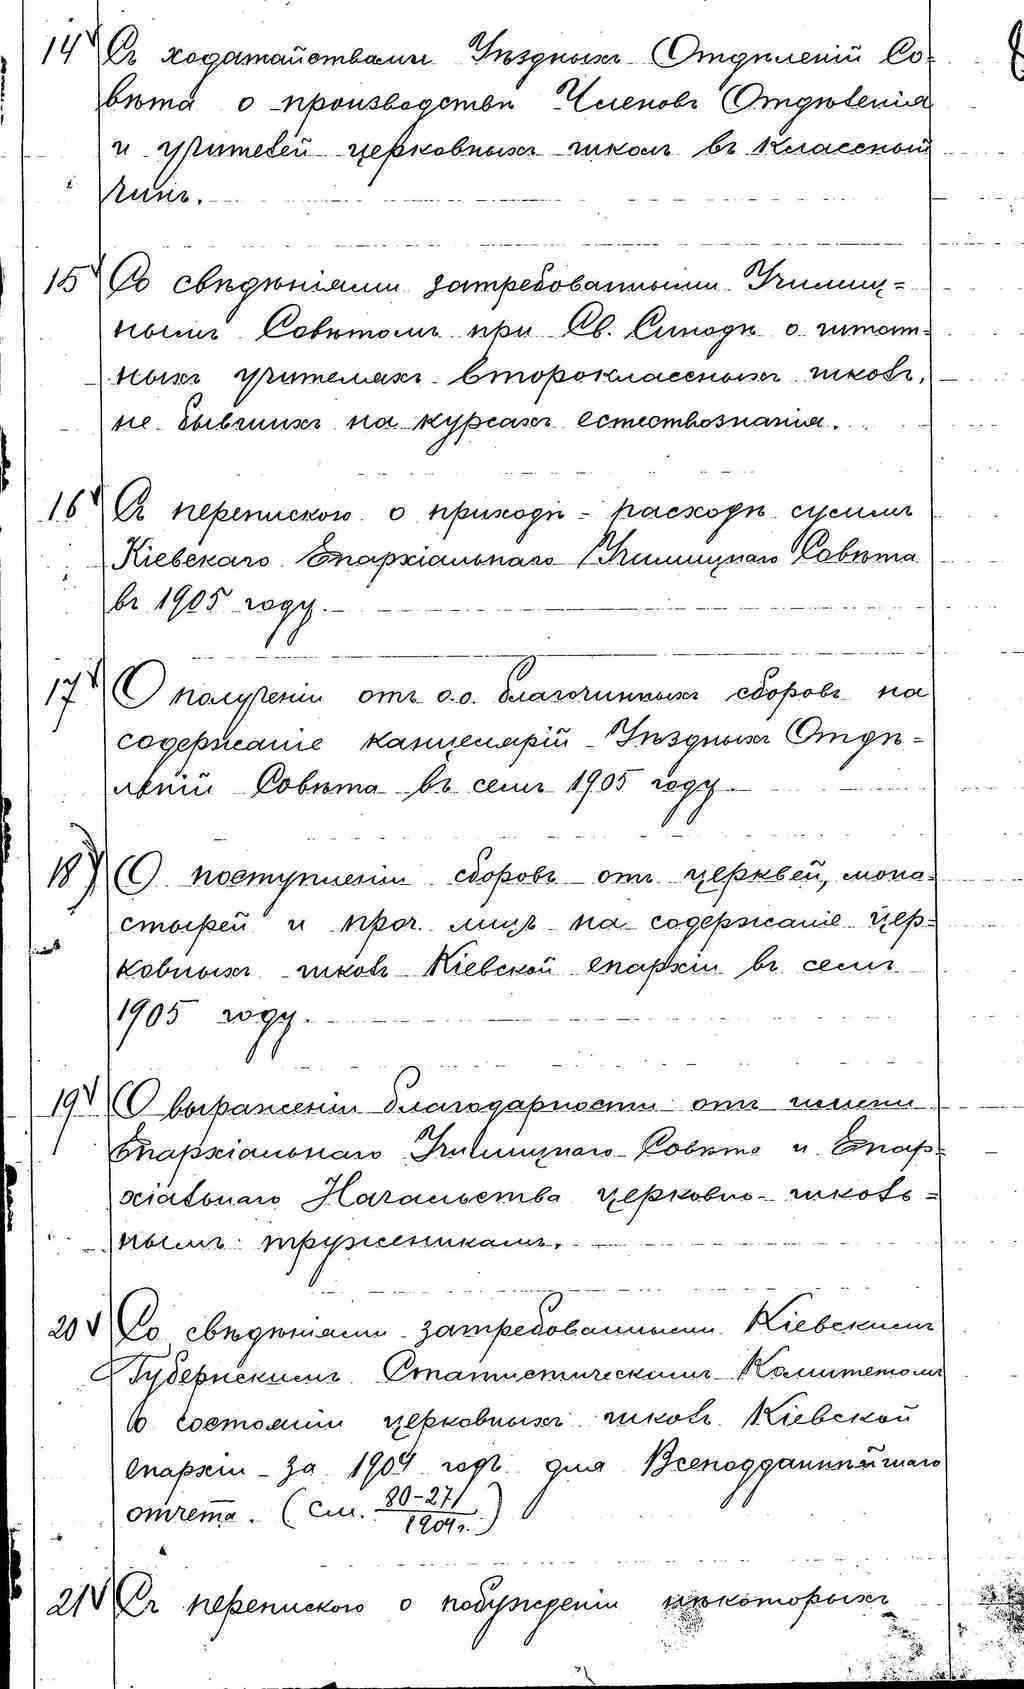 14 Съ ходатайствами Уѣздныхъ Отдѣленій Со-
вѣта о производствѣ Членовъ Отдѣленія
и учителей церковныхъ школъ въ классный
чинъ.
15 Со свѣдѣніями затребованными Училищ=
нымъ Совѣтомъ при Св. Синодѣ о штат-
ныхъ учителяхъ второклассныхъ школъ,
не бывшихъ на курсахъ естествознанія.
16 Съ перепискою о приходѣ-расходѣ суммъ
Кіевскаго Епархіальнаго Училищнаго Совѣта
въ 1905 году.
17 О полученіи отъ о.о. благочинныхъ сборовъ на
содержаніе канцелярій Уѣздныхъ Отдѣ=
леній Совѣта въ семъ 1905 году
18 О поступленіи сборовъ отъ церквей, мона-
стырей и проч. лицъ на содержаніе цер-
ковныхъ школъ Кіевской епархіи въ семъ
1905 году.
19 О выраженіи благодарности отъ имени
Епархіальнаго Училищнаго Совѣта и Епар-
хіальнаго Начальства церковно-школь=
нымъ труженикамъ.
20 Со свѣдѣніями затребованными Кіевскимъ
Губернскимъ Статистическимъ Комитетомъ
о состояніи церковныхъ школъ Кіевской
епархіи за 1904 годъ для Всеподданнѣйшаго
отчета. (см. 80-27/1904г.)
21 Съ перепискою о побужденіи нѣкоторыхъ